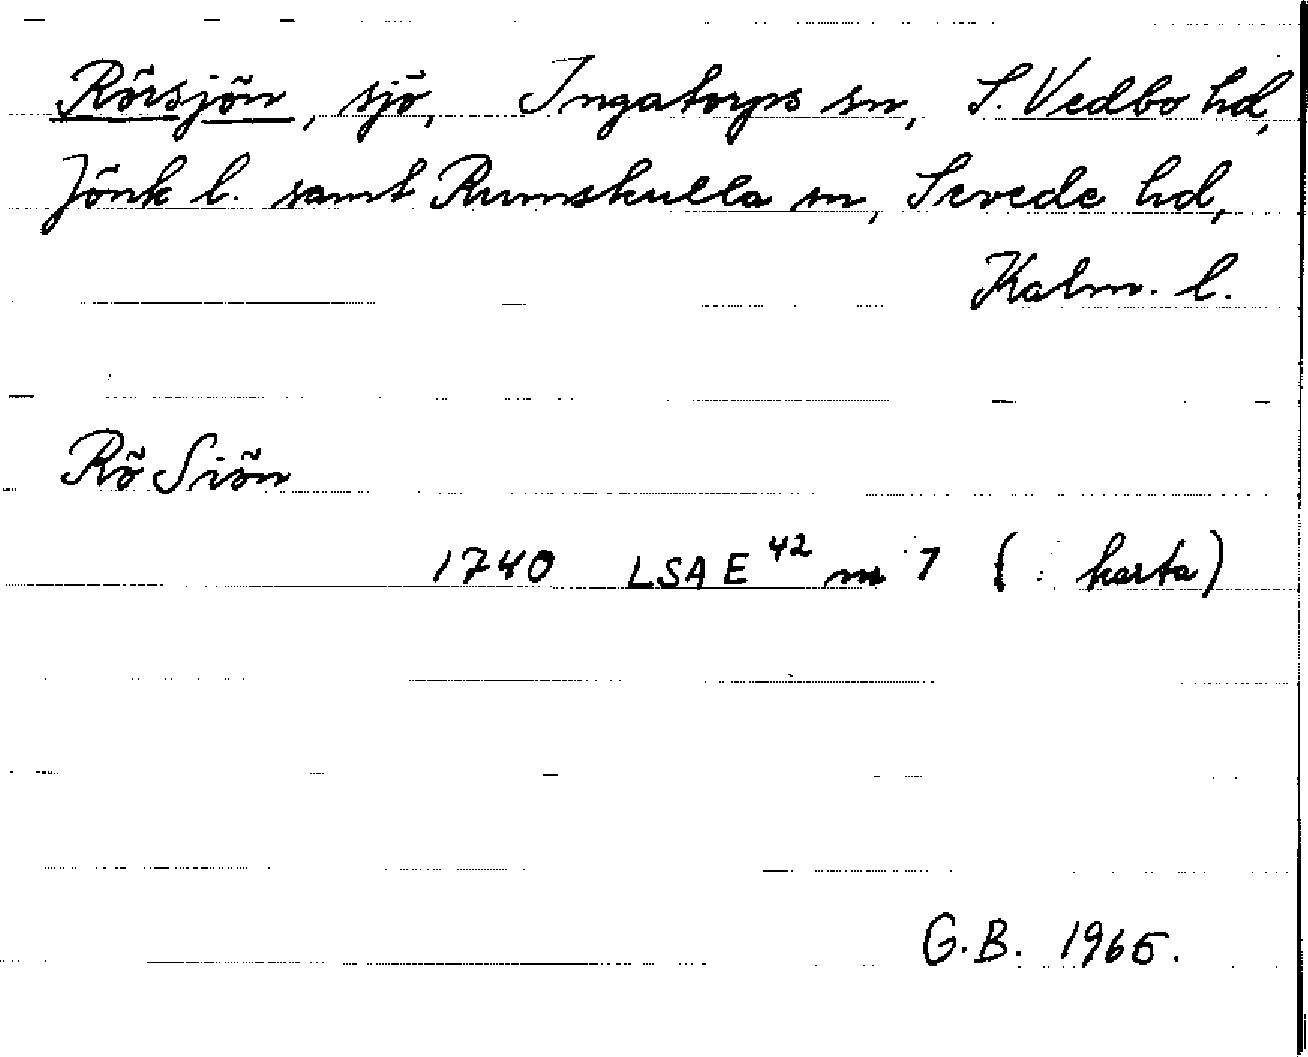 Rörsjön, sjö, Ingatorps sn, S. Vedbo hd,
Jönk l. samt Rumskulla sn, Sevede hd,
Kalm. l.
Rö Siön
1740 LSA E 42 nr 7 (: karta)
G.B. 1965.